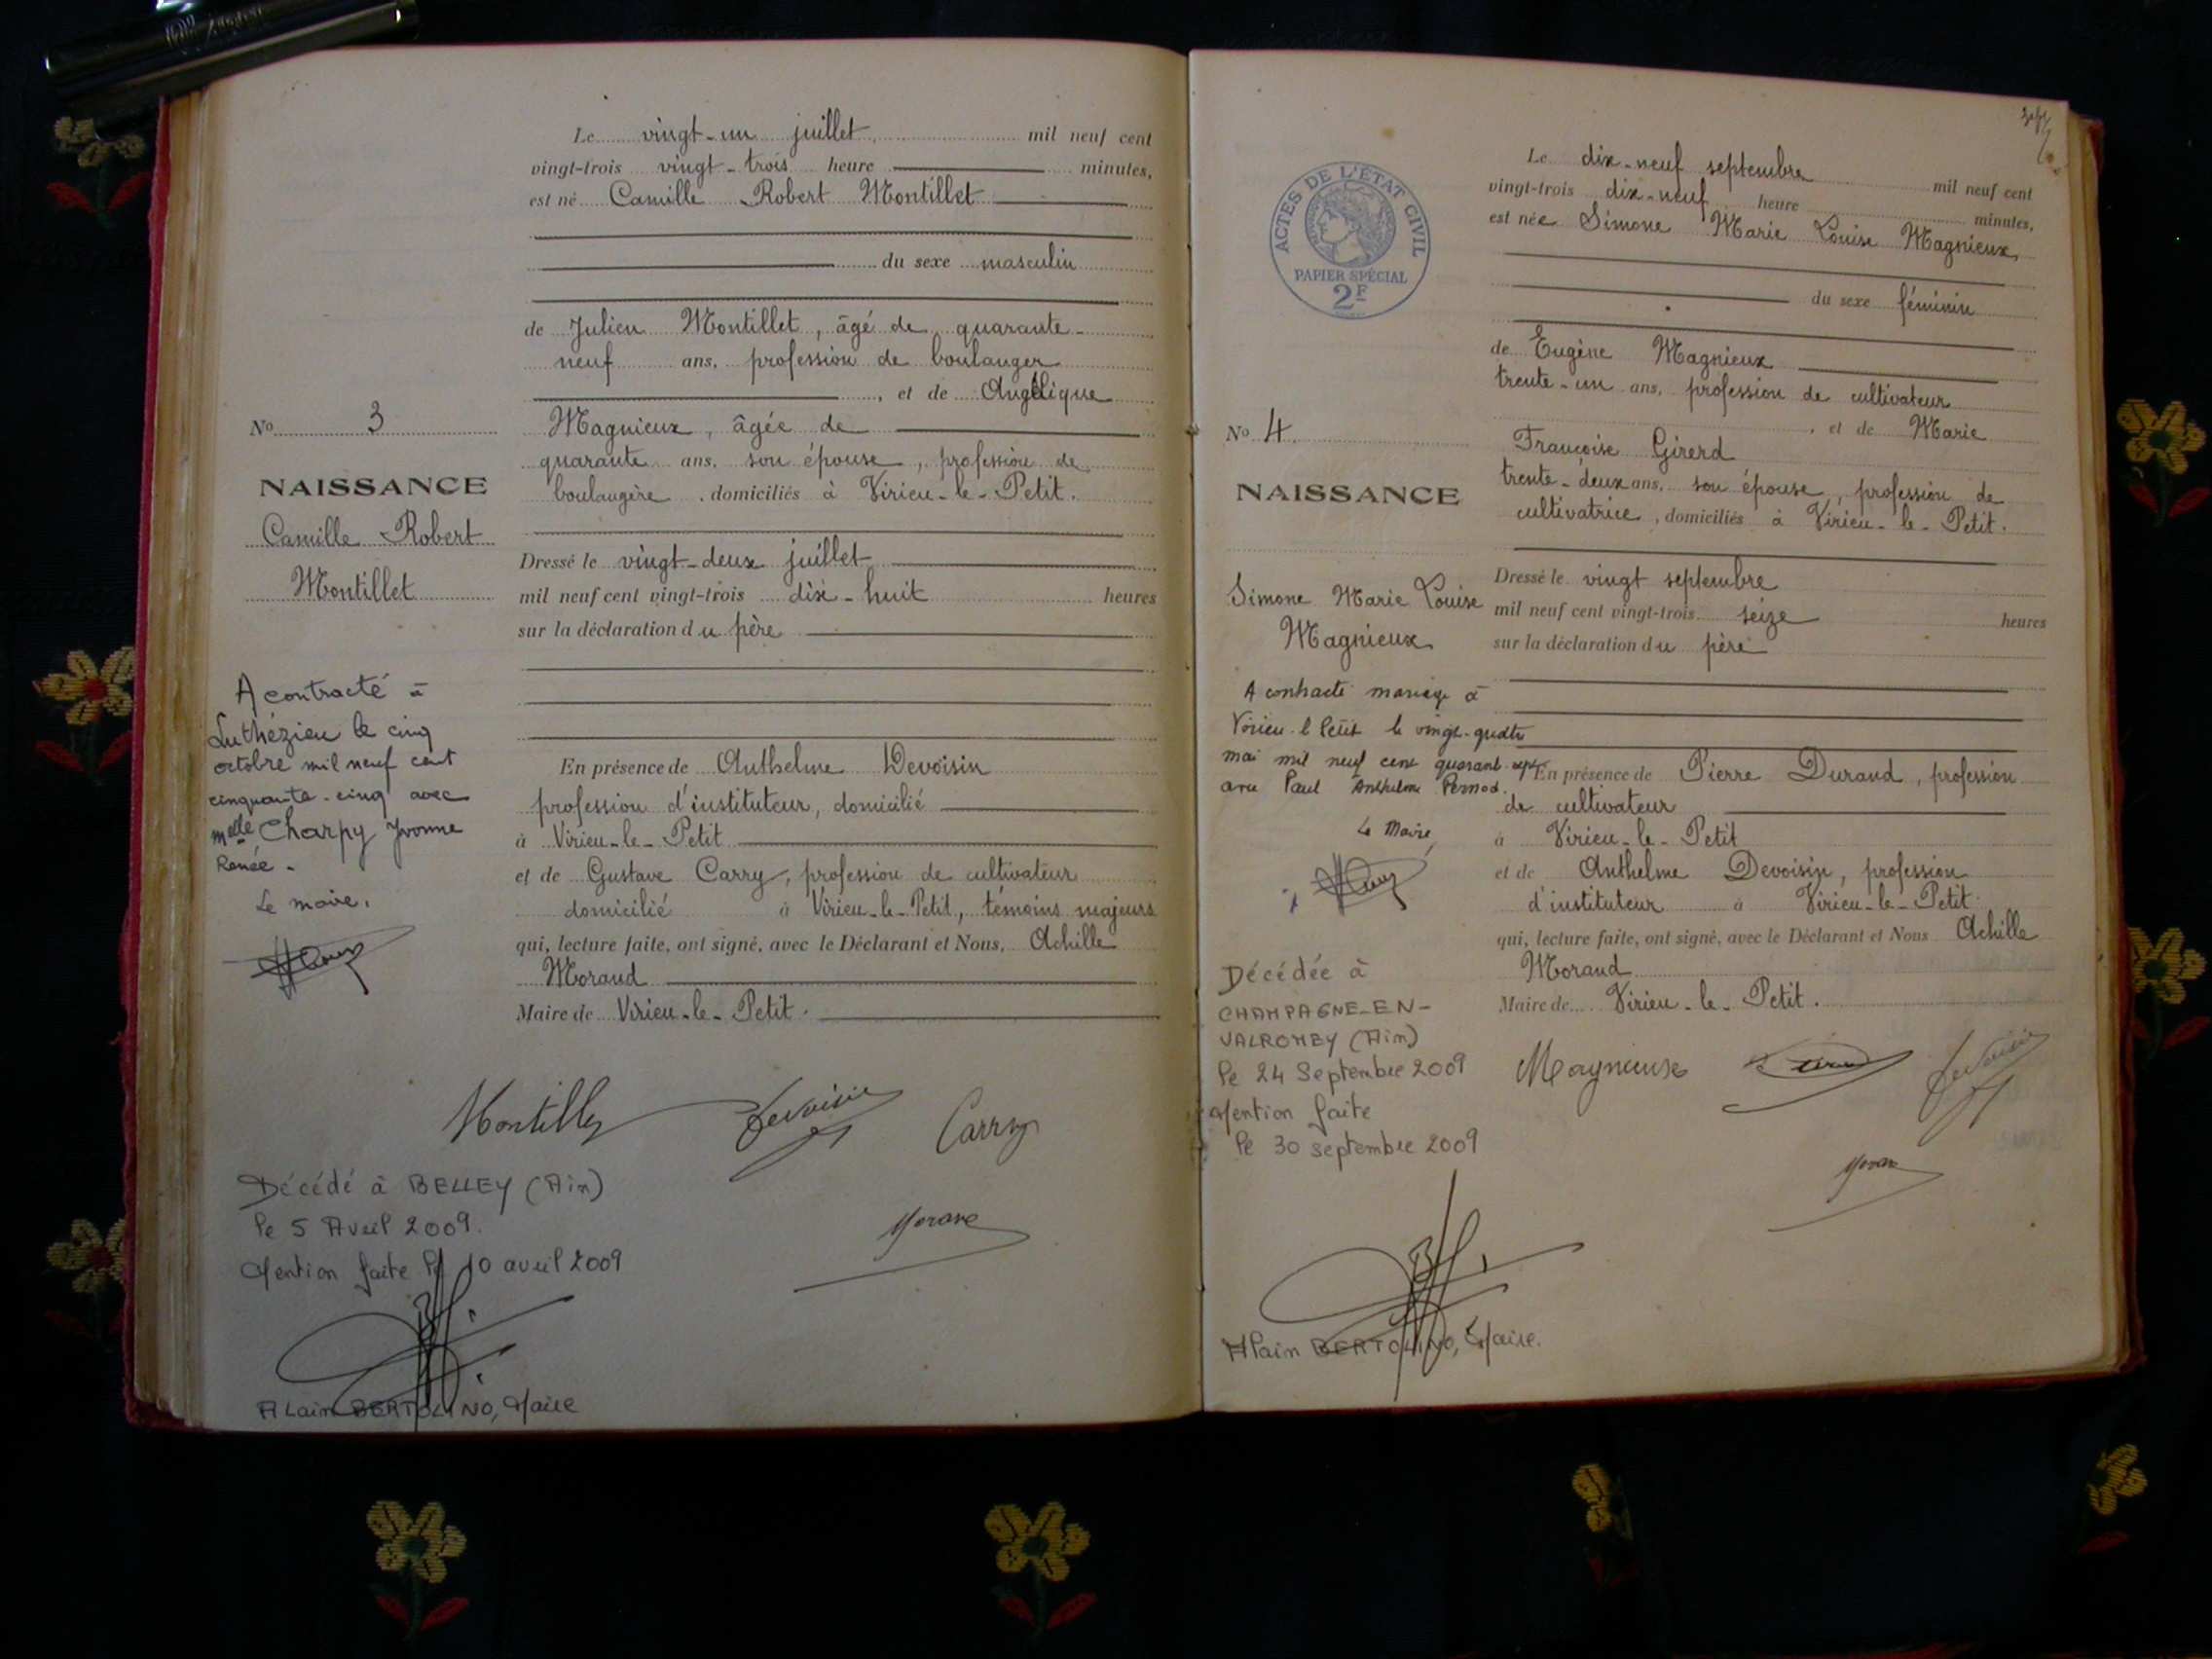 Le vingt-un juillet mil neuf cent
vingt-trois vingt-trois heure minutes,
est né Camille Robert Montillet
du sexe masculin
de Julien Montillet, âgé de quarante-
neuf ans, profession de boulanger
, et de Angélique
Magnieux, âgée de
quarante ans, son épouse, profession de
boulangère, domiciliés à Virieu-le-Petit.
Dressé le vingt-deux juillet
mil neuf cent vingt-trois dix-huit heures
sur la déclaration du père
En présence de Anthelme Devoisin
profession d'instituteur, domicilié
à Virieu-le-Petit
et de Gustave Carry, profession de cultivateur
domicilié à Virieu-le-Petit, témoins majeurs
qui, lecture faite, ont signé, avec le Déclarant et Nous, Achille
Morand
Maire de Virieu-le-Petit.
No 3
NAISSANCE
Camille Robert
Montillet
A contracté à
Luthézieu le cinq
octobre mil neuf cent
cinquante-cinq avec
Melle Charpy Yvonne
Renée-
Le maire,
Montillet Devoisin Carry
Morand
Décédé à BELLEY (Ain)
le 5 Avril 2009.
Mention faite le 10 avril 2009
Alain BERTOLINO, Maire
ACTES DE L'ÉTAT CIVIL
PAPIER SPÉCIAL
2F
Le dix-neuf septembre mil neuf cent
vingt-trois dix-neuf heure minutes,
est née Simone Marie Louise Magnieux
du sexe féminin
de Eugène Magnieux
trente-un ans, profession de cultivateur
, et de Marie
Françoise Girerd
trente-deux ans, son épouse, profession de
cultivatrice, domiciliés à Virieu-le-Petit.
Dressé le vingt septembre
mil neuf cent vingt-trois seize heures
sur la déclaration du père
En présence de Pierre Durand, profession
de cultivateur
à Virieu-le-Petit
et de Anthelme Devoisin, profession
d'instituteur à Virieu-le-Petit.
qui, lecture faite, ont signé, avec le Déclarant et Nous Achille
Morand
Maire de Virieu-le-Petit.
No 4
NAISSANCE
Simone Marie Louise
Magnieux
A contracté mariage à
Virieu-le Petit le vingt-quatre
mai mil neuf cent quarante-sept
avec Paul Anthelme Pernod.
Le Maire,
Décédée à
CHAMPAGNE-EN-
VALROMEY (Ain)
le 24 Septembre 2009
Mention faite
le 30 septembre 2009
Magnieux Durand Devoisin
Morand
Alain BERTOLINO, Maire.